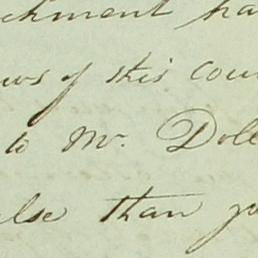 chment ha
ws of this cou
to Mr. Doll
else than yo